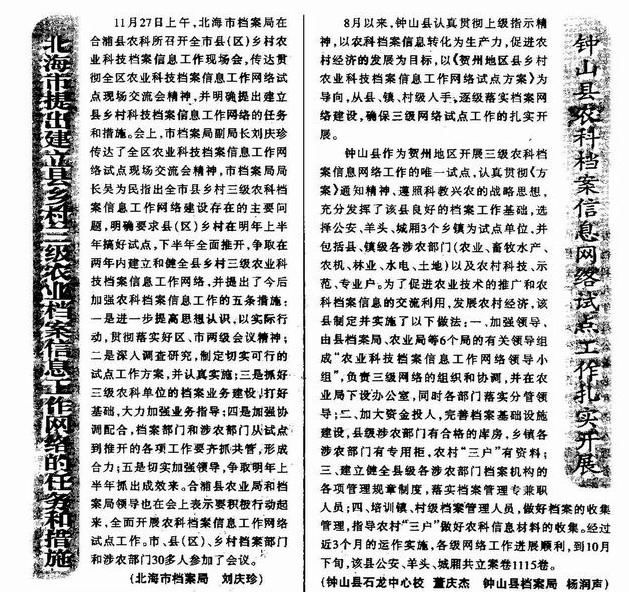 北海市提出建立县乡村三级农业档案信息工作网络的任务和措施
11月27日上午，北海市档案局在
合浦县农科所召开全市县(区)乡村农
业科技档案信息工作现场会，传达贯
彻全区农业科技档案信息工作网络试
点现场交流会精神，并明确提出建立
县乡村科技档案信息工作网络的任务
和措施。会上，市档案局副局长刘庆珍
传达了全区农业科技档案信息工作网
络试点现场交流会精神，市档案局局
长吴为民指出全市县乡村三级农科档
案信息工作网络建设存在的主要问
题，明确要求县(区)乡村在明年上半
年搞好试点，下半年全面推开，争取在
两年内建立和健全县乡村三级农业科
技档案信息工作网络，并提出了今后
加强农科档案信息工作的五条措施：
一是进一步提高思想认识，以实际行
动，贯彻落实好区、市两级会议精神；
二是深入调查研究，制定切实可行的
试点工作方案，并认真实施；三是抓好
三级农科单位的档案业务建设，打好
基础，大力加强业务指导；四是加强协
调配合，档案部门和涉农部门从试点
到推开的各项工作要齐抓共管，形成
合力；五是切实加强领导，争取明年上
半年抓出成效来。合浦县农业局和档
案局领导也在会上表示要积极行动起
来，全面开展农科档案信息工作网络
试点工作。市、县(区)、乡村档案部门
和涉农部门30多人参加了会议。
(北海市档案局 刘庆珍)
钟山县农科档案信息网络试点工作扎实开展
8月以来，钟山县认真贯彻上级指示精
神，以农科档案信息转化为生产力，促进农
村经济的发展为目标，以《贺州地区县乡村
农业科技档案信息工作网络试点方案》为
导向，从县、镇、村级人手，逐级落实档案网
络建设，确保三级网络试点工作的扎实开
展。
钟山县作为贺州地区开展三级农科档
案信息网络工作的唯一试点，认真贯彻《方
案》通知精神、遵照科教兴农的战略思想，
充分发挥了该县良好的档案工作基础，选
择公安、羊头、城厢3个乡镇为试点单位，并
包括县、镇级各涉农部门(农业、畜牧水产、
农机、林业、水电、土地)以及农村科技、示
范、专业户。为了促进农业技术的推广和农
科档案信息的交流利用，发展农村经济，该
县制定并实施了以下做法：一、加强领导，
由县档案局、农业局等6个局的有关领导组
成“农业科技档案信息工作网络领导小
组”，负责三级网络的组织和协调，并在农
业局下设办公室，同时各部门落实分管领
导；二、加大资金投人，完善档案基础设施
建设，县级涉农部门有合格的库房，乡镇各
涉农部门有专用柜，农村“三户”有资料；
三、建立健全县级各涉农部门档案机构的
各项管理规章制度，落实档案管理专兼职
人员；四、培训镇、村级档案管理人员，做好档案的收集
管理，指导农村“三户”做好农科信息材料的收集。经过
近3个月的运作实施，各级网络工作进展顺利，到10月
下旬，该县公安、羊头、城厢共立案卷1115卷。
(钟山县石龙中心校 董庆杰 钟山县档案局 杨润声)